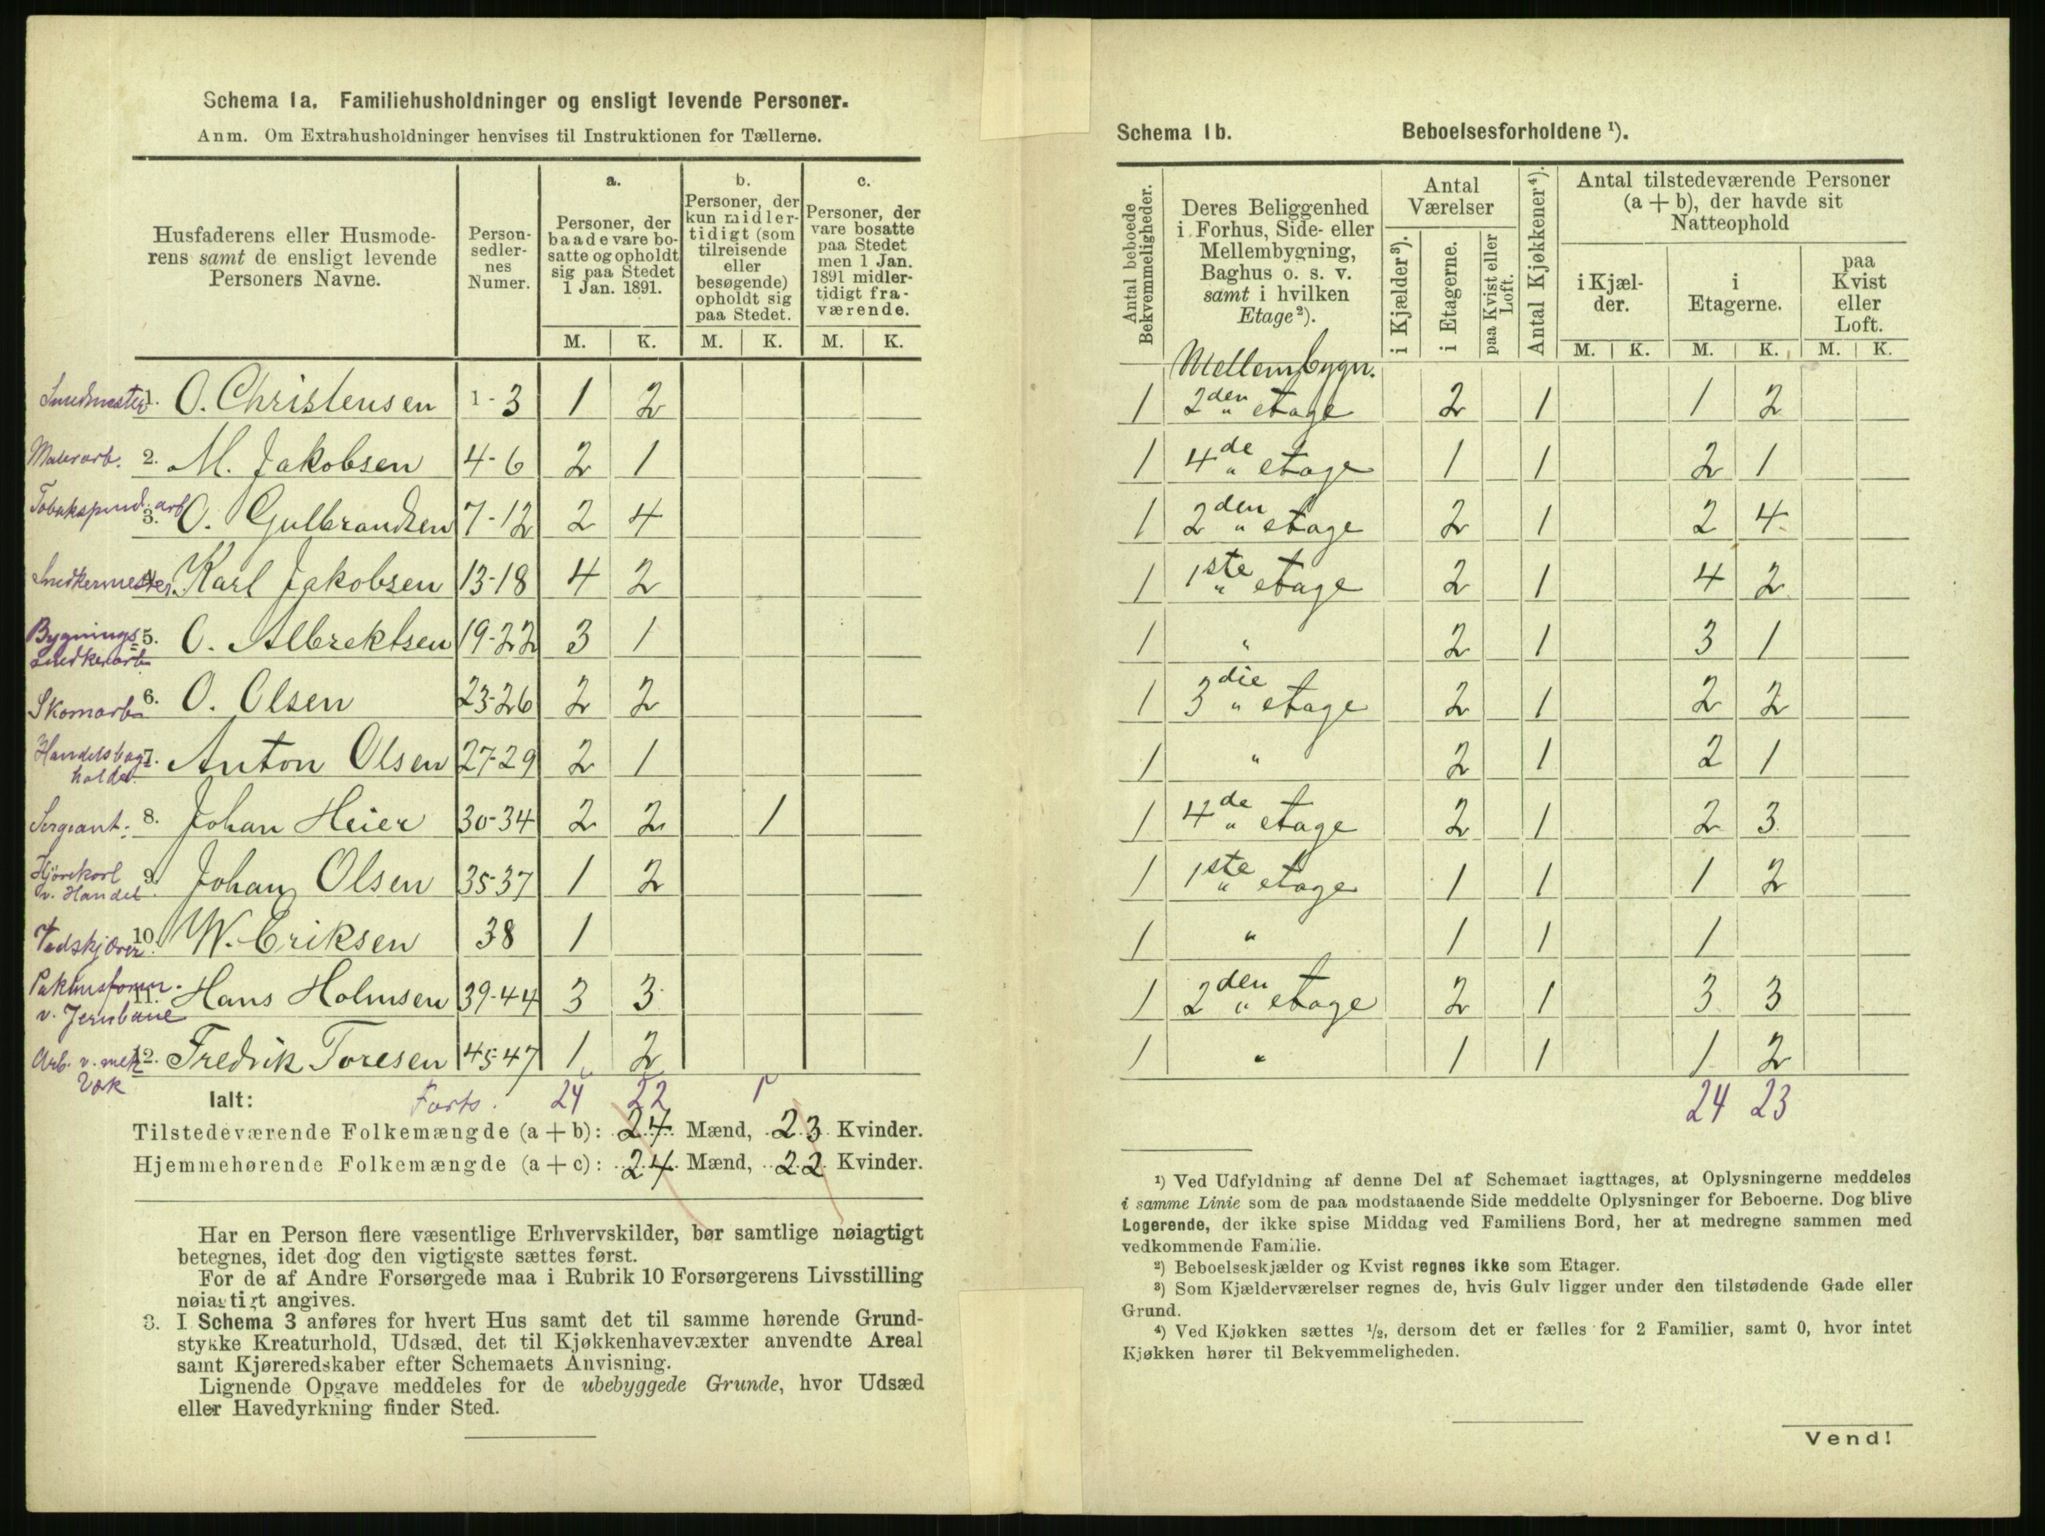 Schema 1a. Familiehusholdninger og ensligt levende Personer.
Anm. Om Extrahusholdninger henvises til Instruktionen for Tællerne.
Husfaderens eller Husmode-
rens samt de ensligt levende
Personers Navne.
Person-
sedler-
nes
Numer.
a.
Personer, der
baade vare bo-
satte og opholdt
sig paa Stedet
1 Jan. 1891.
b.
Personer, der
kun midler-
tidigt (som
tilreisende
eller
besøgende)
opholdt sig
paa Stedet.
c.
Personer, der
vare bosatte
paa Stedet
men 1 Jan.
1891 midler-
tidigt fra-
værende.
M. K. M. K. M. K.
Smedmester 1. O. Christensen 1-3 1 2
Malerarb. 2. M. Jakobsen 4-6 2 1
Tobakspind. arb 3. O. Gulbrandsen 7-12 2 4
Snedkermester 4. Karl Jakobsen 13-18 4 2
Bygnings= 5. O. Albrektsen 19-22 3 1
snedkerarb
Skomarb 6. O. Olsen 23-26 2 2
Handelsbog= 7. Anton Olsen 27-29 2 1
holder
Sergeant. 8. Johan Heier 30-34 2 2 1
Kjørekarl 9. Johan Olsen 35-37 1 2
v. Handel.
Vedskjærer 10. W. Eriksen 38 1
Pakhusform. 11. Hans Holmsen 39-44 3 3
v. Jernbane
Arb. v. mek 12. Fredrik Toresen 45-47 1 2
Værk
Ialt: Forts. 24 22 1
Tilstedeværende Folkemængde (a + b): 24 Mænd, 23 Kvinder.
Hjemmehørende Folkemængde (a + c): 24 Mænd, 22 Kvinder.
Har en Person flere væsentlige Erhvervskilder, bør samtlige nøiagtigt
betegnes, idet dog den vigtigste sættes først.
For de af Andre Forsørgede maa i Rubrik 10 Forsørgerens Livsstilling
nøiagtigt angives.
3. I Schema 3 anføres for hvert Hus samt det til samme hørende Grund-
stykke Kreaturhold, Udsæd, det til Kjøkkenhavevæxter anvendte Areal
samt Kjøreredskaber efter Schemaets Anvisning.
Lignende Opgave meddeles for de ubebyggede Grunde, hvor Udsæd
eller Havedyrkning finder Sted.
Schema 1b. Beboelsesforholdene ¹).
Antal beboede
Bekvemmeligheder.
Deres Beliggenhed
i Forhus, Side- eller
Mellembygning,
Baghus o. s. v.
samt i hvilken
Etage ²).
Antal
Værelser
i Kjælder ³).
i Etagerne.
paa Kvist eller
Loft.
Antal Kjøkkener ⁴).
Antal tilstedeværende Personer
(a + b), der havde sit
Natteophold
i Kjæl-
der.
i
Etagerne.
paa
Kvist
eller
Loft.
M. K. M. K. M. K.
Mellembygn.
1 2den " etage 2 1 1 2
1 4de " etage 1 1 2 1
1 2den " etage 2 1 2 4
1 1ste " etage 2 1 4 2
1 " 2 1 3 1
1 3die " etage 2 1 2 2
1 " 2 1 2 1
1 4de " etage 2 1 2 3
1 1ste " etage 1 1 1 2
1 " 1 1 1
1 2den " etage 2 1 3 3
1 " 1 1 1 2
24 23
¹) Ved Udfyldning af denne Del af Schemaet iagttages, at Oplysningerne meddeles
i samme Linie som de paa modstaaende Side meddelte Oplysninger for Beboerne. Dog blive
Logerende, der ikke spise Middag ved Familiens Bord, her at medregne sammen med
vedkommende Familie.
²) Beboelseskjælder og Kvist regnes ikke som Etager.
³) Som Kjælderværelser regnes de, hvis Gulv ligger under den tilstødende Gade eller
Grund.
⁴) Ved Kjøkken sættes ½, dersom det er fælles for 2 Familier, samt 0, hvor intet
Kjøkken hører til Bekvemmeligheden.
Vend!